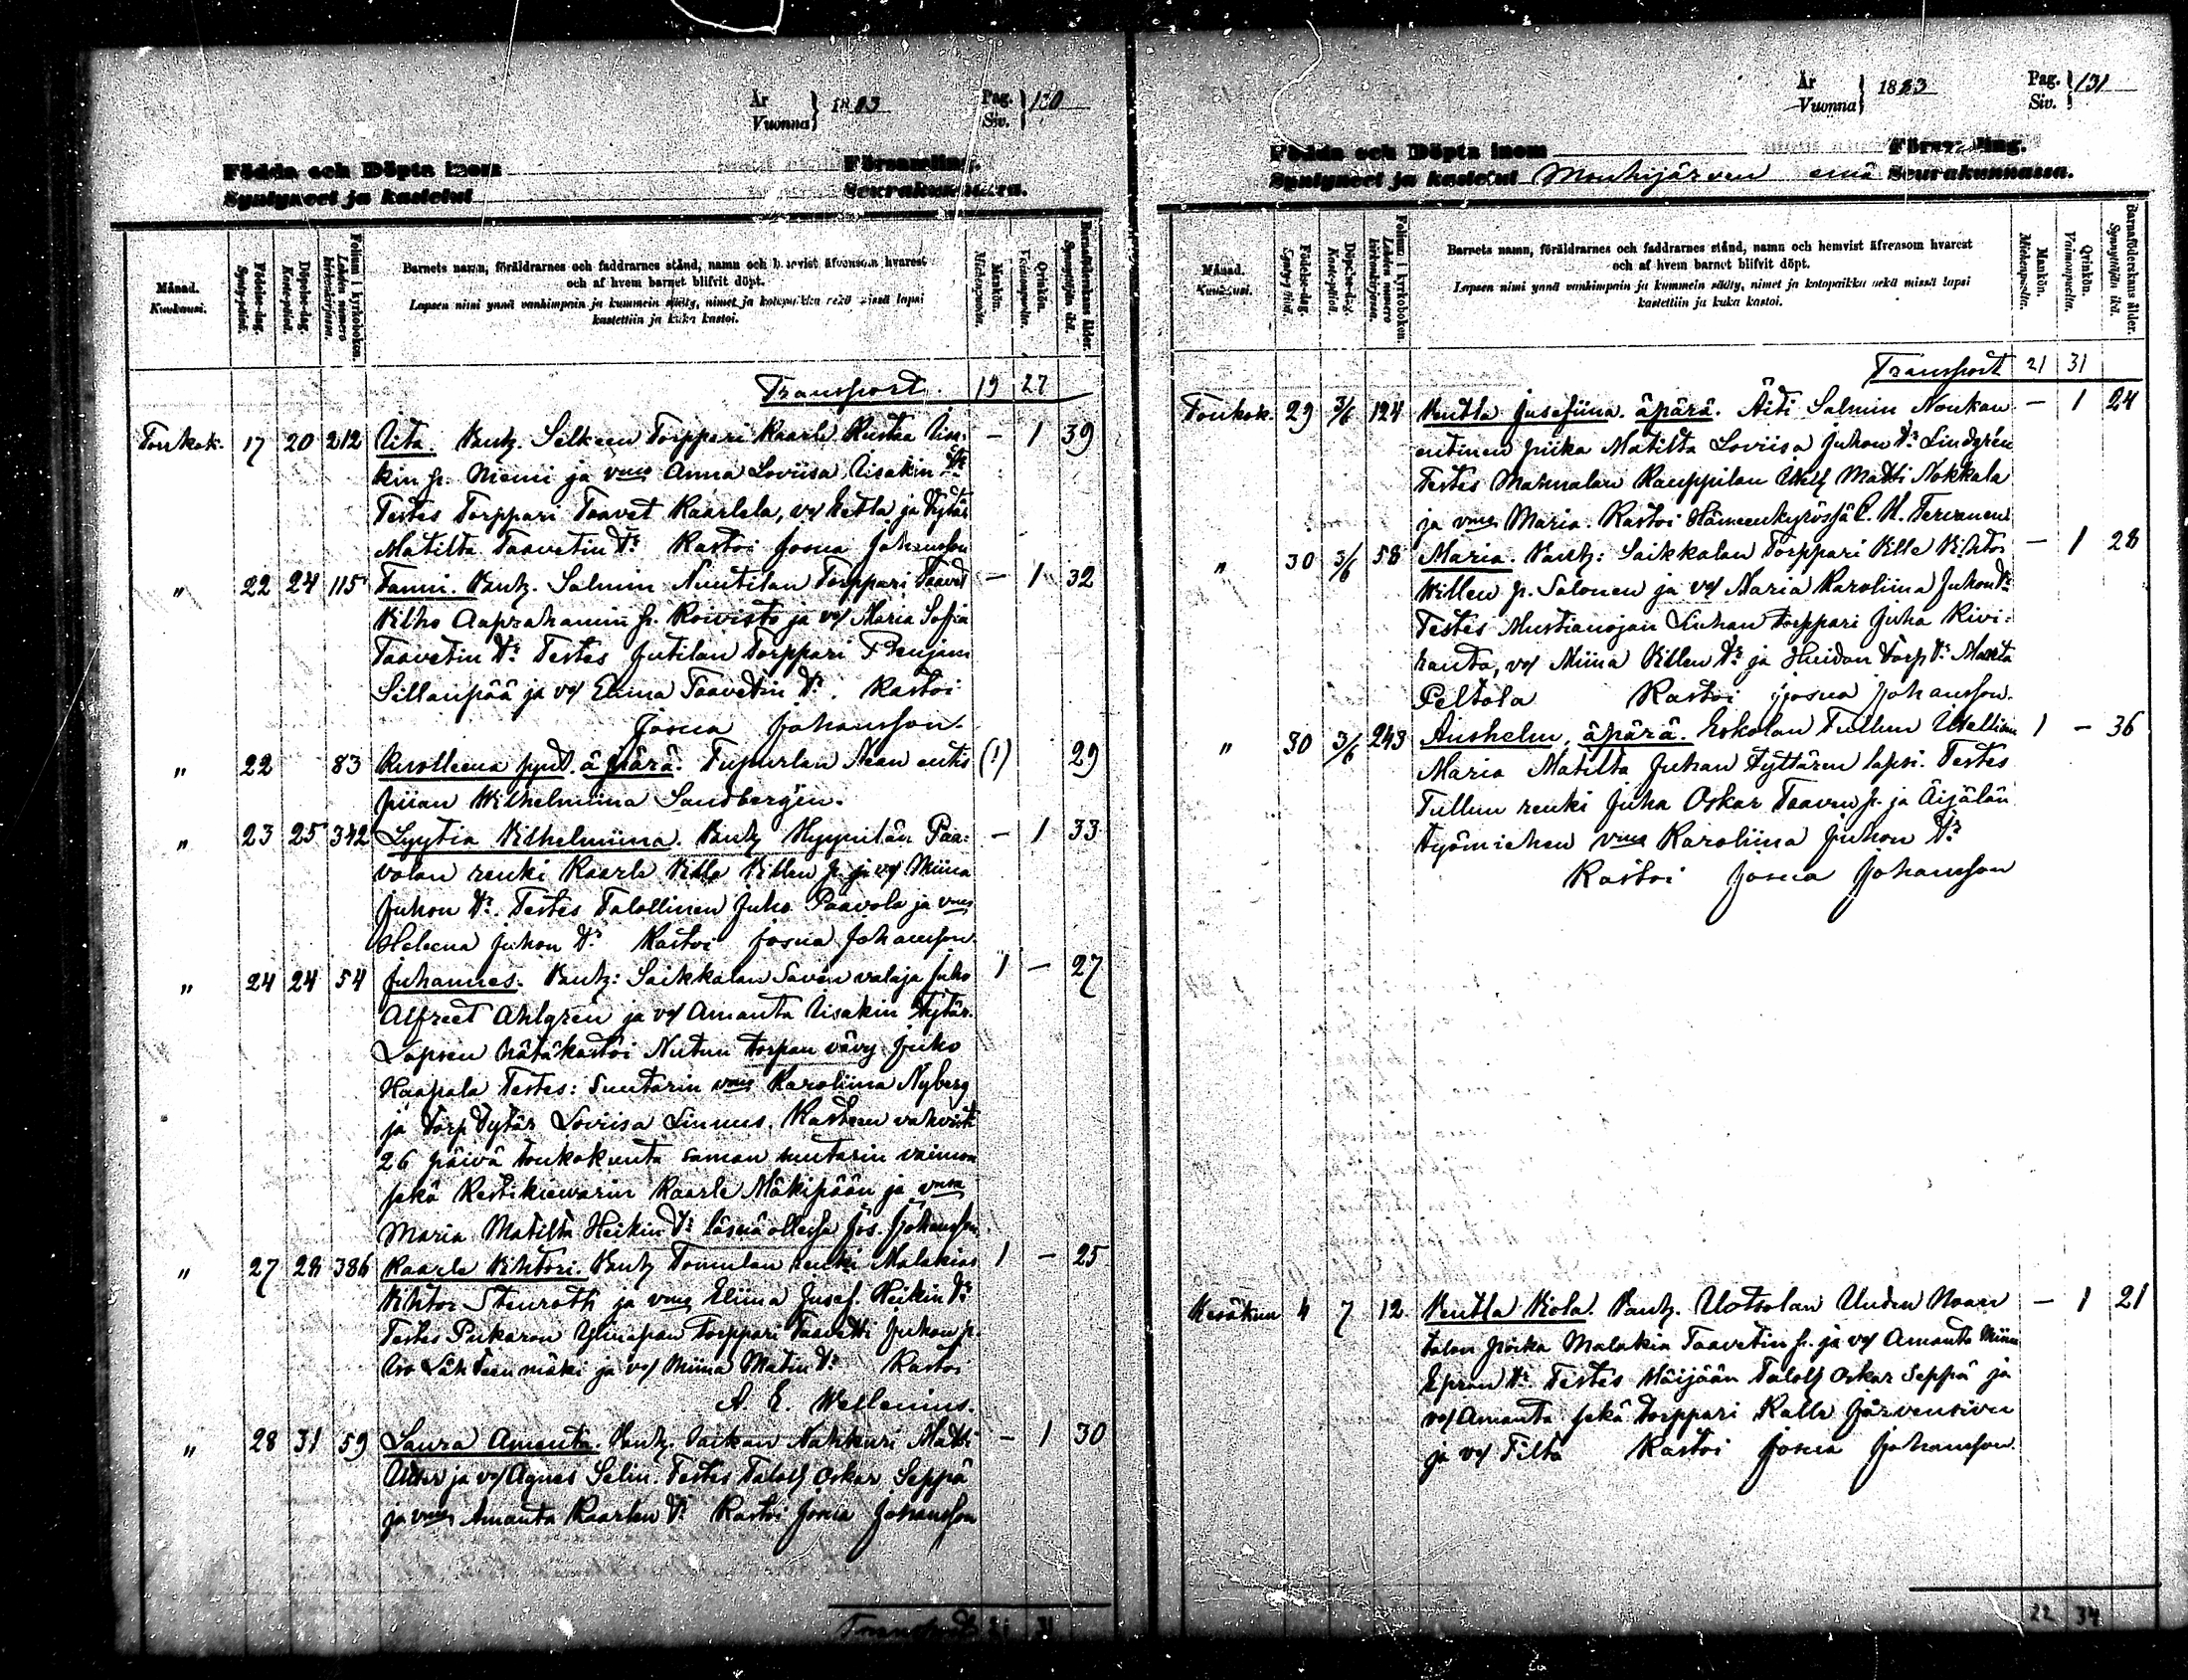 År Vuonna } 1883 Pag. Siv. } 130
Födda och Döpta inom Församling.
Syntyneet ja kastetut Seurakunnassa.
Månad. Kuukausi.
Födelse-dag. Synty-päivä.
Döpelse-dag. Kaste-päivä.
Folium i kyrkoboken. Lehden numero kirkonkirjassa.
Barnets namn, föräldrarnes och faddrarnes stånd, namn och hemvist äfvensom hvarest
och af hvem barnet blifvit döpt.
Lapsen nimi ynnä vanhimpain ja kummein sääty, nimet ja kotopaikka sekä missä lapsi
kastettiin ja kuka kastoi.
Mankön. Miehenpuolta.
Qvinkön. Vaimonpuolta.
Barnaföderskans ålder. Synnyttäjän ikä.
Transport. 19 27
Toukok. 17 20 212 Iita. Vanh. Selkeen Torppari Kaarle Kustaa
kin p. Niemi ja vmo Anna Loviisa Iisakin
Testes Torppari Taavet Kaarlela, ja Tytär
Matilta Taavetin Tr Kastoi Josua Johansson — 1 39
" 22 24 115 Fanni. Vanh. Salmin Nuutilan Torppari Taavet
Vilho Aaprahamin p. Koivisto ja vo/ Maria Sofia
Taavetin Tr Testes Jutilan Torppari F Benjam
Sillanpää ja vo/ Emma Taavetin Tr. Kastoi
Josua Johansson. — 1 32
" 22 83 Kuolleena synt. äpärä. entis
piian Wilhelmiina Sandbergin. (1) 29
" 23 25 342 Lyytia Vilhelmiina. Vanh Hyynilän Paa-
volan renki Kaarle Ville Villen p. ja vo/ Miina
Juhon Tr. Testes Talollinen Juho Paavola ja vmo
Heleena Juhon Tr Kastoi Josua Johansson. — 1 33
" 24 24 54 Juhannes. Vanh: Saikkalan Saven valaja Juho
Alfreet Ahlgrén ja vo/ Amanta Iisakin Tytär.
Lapsen hätäkastoi torpan vävy Juho
Haapala Testes: Suutarin vmo Karoliina Nyberg
ja Torp Tytär Loviisa Linnus. Kasteen vahvisti
26 päivä toukokuuta saman suutarin vaimon
sekä Kestikievarin Kaarle Mäkipään ja vmon
Maria Matilta Heikin Tr läsnäollessa Jos. Johansson. 1 — 27
" 27 28 386 Kaarle Vihtori. Vanh Tomulan renki Malakias
Vihtor Stenroth ja vmo Eliina Josef. Heikin Tr
Testes Torppari Taavetti Juhon p.
Iso Lähteenmäki ja vo/ Miina Matin Tr Kastoi
A. E. Wellenius. 1 — 25
" 28 31 59 Laura Amanta. Vanh. Nahkuri Matti
ja vo/ Agnes Selin. Testes Taloll Oskar Seppä
ja vmo Amanta Kaarlen Tr Kastoi Josua Johansson — 1 30
Transport 21 31
År Vuonna } 1883 Pag. Siv. } 131
Födda och Döpta inom Församling.
Syntyneet ja kastetut Mouhijärven emä Seurakunnassa.
Månad. Kuukausi.
Födelse-dag. Synty-päivä.
Döpelse-dag. Kaste-päivä.
Folium i kyrkoboken. Lehden numero kirkonkirjassa.
Barnets namn, föräldrarnes och faddrarnes stånd, namn och hemvist äfvensom hvarest
och af hvem barnet blifvit döpt.
Lapsen nimi ynnä vanhimpain ja kummein sääty, nimet ja kotopaikka sekä missä lapsi
kastettiin ja kuka kastoi.
Mankön. Miehenpuolta.
Qvinkön. Vaimonpuolta.
Barnaföderskans ålder. Synnyttäjän ikä.
Transport 21 31
Toukok. 29 3/6 124 Hentla Jusefiina. äpärä. Äiti Salmin Noukan
entinen piika Matilta Loviisa Juhon Tr Lindgrén
Testes Mahnalan Kauppilan Matti Nokkala
ja vmo Maria. Kastoi Hämeenkyrössä C. H. Tervanen — 1 24
" 30 3/6 58 Maria. Vanh: Saikkalan Torppari Ville Vihtor
Villen p. Salonen ja vo/ Maria Karoliina Juhon Tr
Testes Mustianojan Torppari Juha Kivi-
ranta, vo/ Miina Villen Tr ja Torp Tr Manta
Peltola Kastoi Josua Johansson. — 1 28
" 30 3/6 243 Anshelm, äpärä. Eskolan Tullun Itsellisen
Maria Matilta Juhan tyttären lapsi. Testes
Tullun renki Juha Oskar Taaven p. ja Äijälän
työmiehen vmo Karoliina Juhon Tr
Kastoi Josua Johansson 1 — 36
Kesäkuu 4 7 12 Hentla Viola. Vanh. Uotsolan Uuden
talon poika Malakia Taavetin p. ja vo/ Amanta Miina
Epran Tr Testes Häijään Taloll Oskar Seppä ja
vo/ Amanta sekä Torppari Kalle Järvensivu
ja vo/ Tilta Kastoi Josua Johansson. — 1 21
22 34